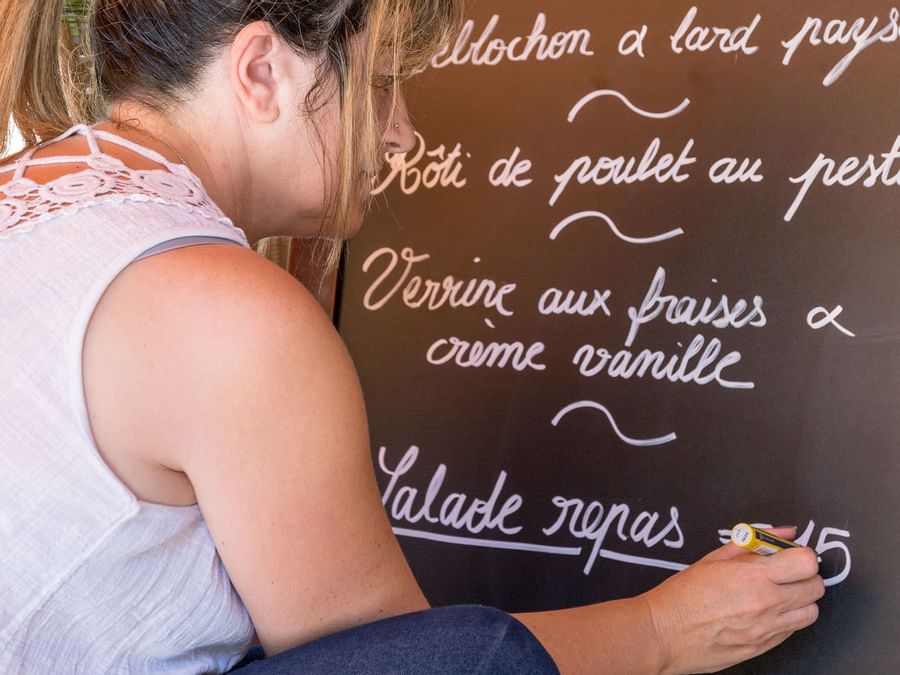 eblochon & lard pays
Rôti de poulet au pest
Verrine aux fraises &
crème vanille
Salade repas = 15